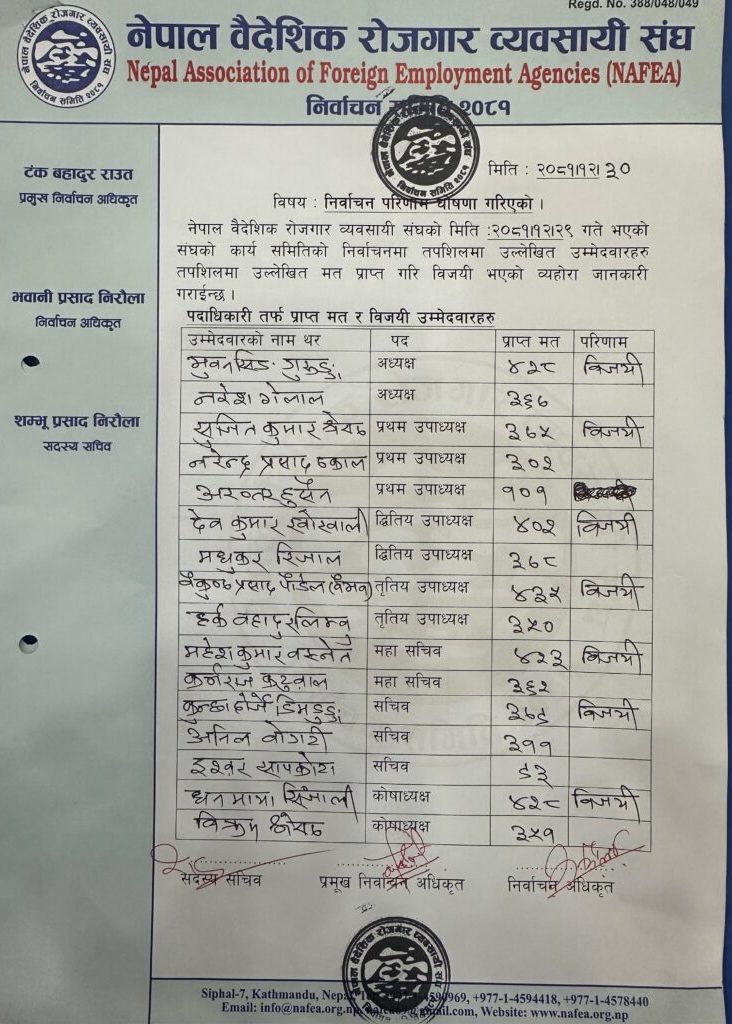 Regd. No. 388/048/049
नेपाल वैदेशिक रोजगार व्यवसायी संघ
Nepal Association of Foreign Employment Agencies (NAFEA)
निर्वाचन समिति २०८१
नेपाल वैदेशिक रोजगार व्यवसायी संघ
निर्वाचन समिति २०८१
टंक बहादुर राउत
प्रमुख निर्वाचन अधिकृत
भवानी प्रसाद निरौला
निर्वाचन अधिकृत
शम्भू प्रसाद निरौला
सदस्य सचिव
मिति : २०८१।१२।३०
विषय : निर्वाचन परिणाम घोषणा गरिएको ।
नेपाल वैदेशिक रोजगार व्यवसायी संघको मिति :२०८१।१२।२९ गते भएको
संघको कार्य समितिको निर्वाचनमा तपशिलमा उल्लेखित उम्मेदवारहरु
तपशिलमा उल्लेखित मत प्राप्त गरि विजयी भएको व्यहोरा जानकारी
गराईन्छ ।
पदाधिकारी तर्फ प्राप्त मत र विजयी उम्मेदवारहरु
उम्मेदवारको नाम थर पद प्राप्त मत परिणाम
भुवनसिंह गुरुङ्ग अध्यक्ष ४२८ विजयी
नरेश गेलाल अध्यक्ष ३६७
सुजित कुमार श्रेष्ठ प्रथम उपाध्यक्ष ३६५ विजयी
नरेन्द्र प्रसाद ढकाल प्रथम उपाध्यक्ष ३०२
हुसेन प्रथम उपाध्यक्ष १०१
देव कुमार द्वितिय उपाध्यक्ष ४०२ विजयी
मधुकर रिजाल द्वितिय उपाध्यक्ष ३६८
बैकुण्ठ प्रसाद पौडेल (वैभव) तृतिय उपाध्यक्ष ४३५ विजयी
हर्क बहादुर लिम्बु तृतिय उपाध्यक्ष ३५०
महेश कुमार बस्नेत महा सचिव ४२३ विजयी
कर्नराज कटुवाल महा सचिव ३६२
दोर्जे सचिव ३७९ विजयी
अनिल बोगटी सचिव ३११
इश्वर सापकोटा सचिव ९३
धनमाया सिंजाली कोषाध्यक्ष ४२८ विजयी
विक्रम श्रेष्ठ कोषाध्यक्ष ३५१
सदस्य सचिव प्रमुख निर्वाचन अधिकृत निर्वाचन अधिकृत
नेपाल वैदेशिक रोजगार व्यवसायी संघ
Siphal-7, Kathmandu, Nepal +977-1-4594418, +977-1-4578440
Email: info@nafea.org.np Website: www.nafea.org.np